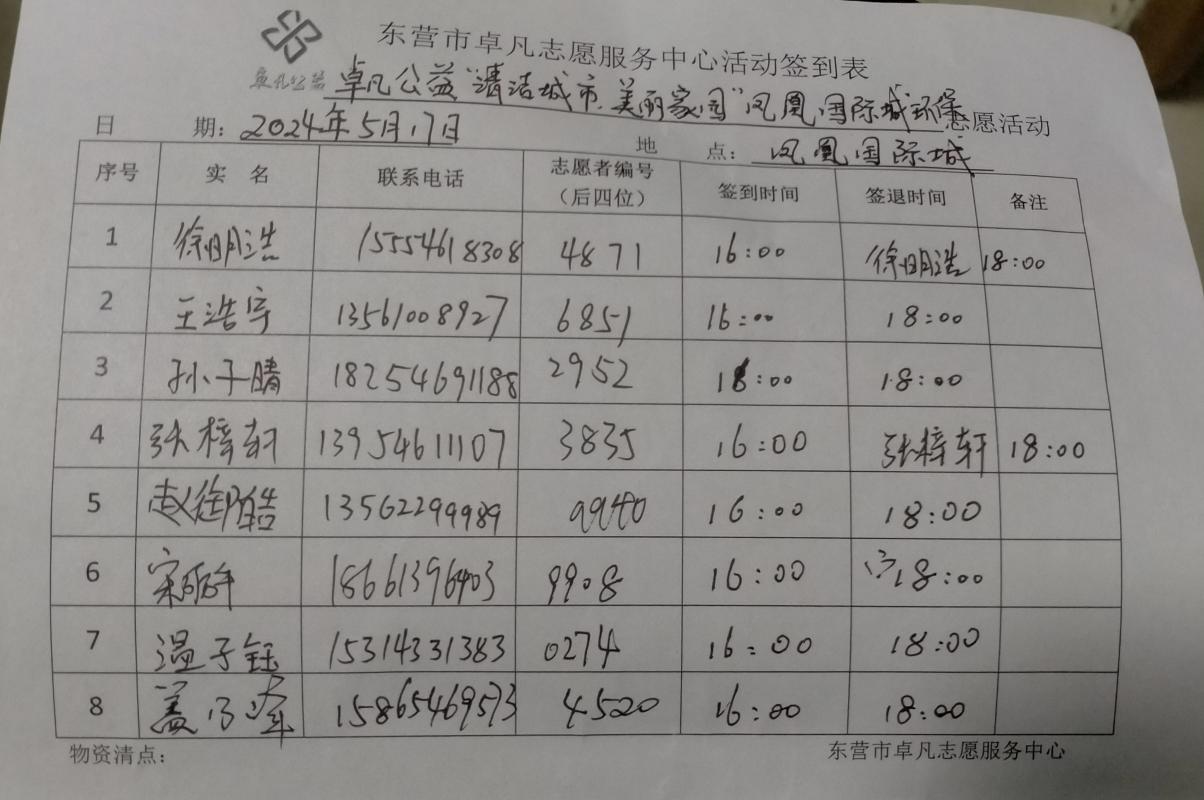 东营市卓凡志愿服务中心活动签到表
卓凡公益
卓凡公益"清洁城市.美丽家园"凤凰国际城环保志愿活动
日 期：2024年5月17日 地 点：凤凰国际城
序号 实 名 联系电话 志愿者编号（后四位） 签到时间 签退时间 备注
1 徐明浩 15554618308 4871 16:00 徐明浩 18:00
2 王浩宇 13561008927 6851 16:00 18:00
3 孙子晴 18254691188 2952 16:00 18:00
4 张梓轩 13954611107 3835 16:00 张梓轩 18:00
5 赵御皓 13562299989 9940 16:00 18:00
6 宋 18661396403 9908 16:00 18:00
7 温子钰 15314331383 0274 16:00 18:00
8 盖 15865469573 4520 16:00 18:00
物资清点： 东营市卓凡志愿服务中心